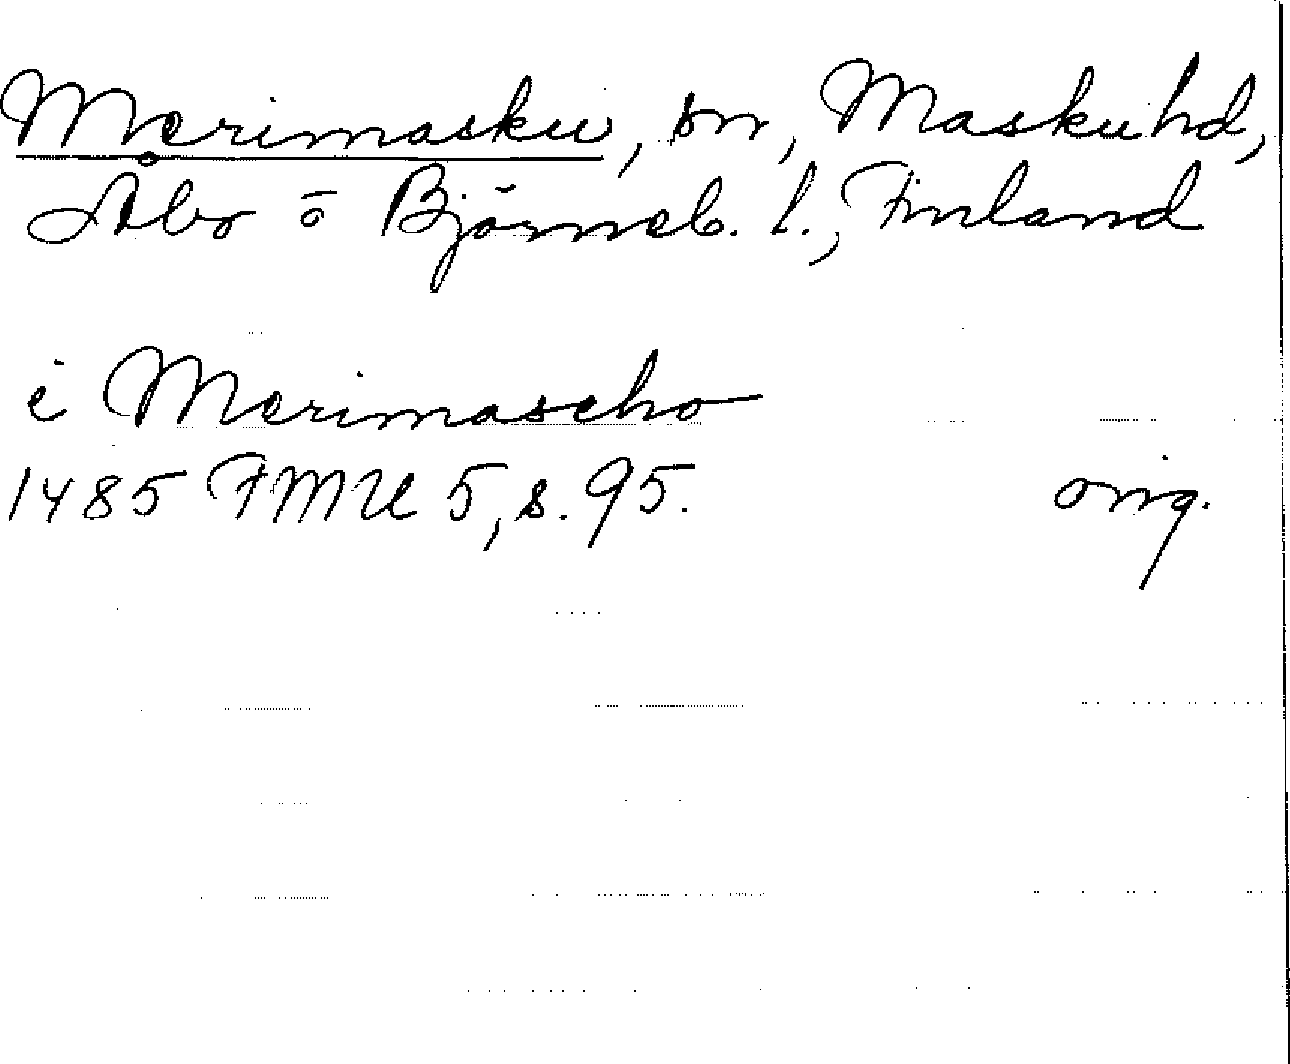 Merimasku, sn, Masku hd,
Åbo o Björneb. l., Finland
i Merimascho
1485 FMU 5, s. 95. orig.